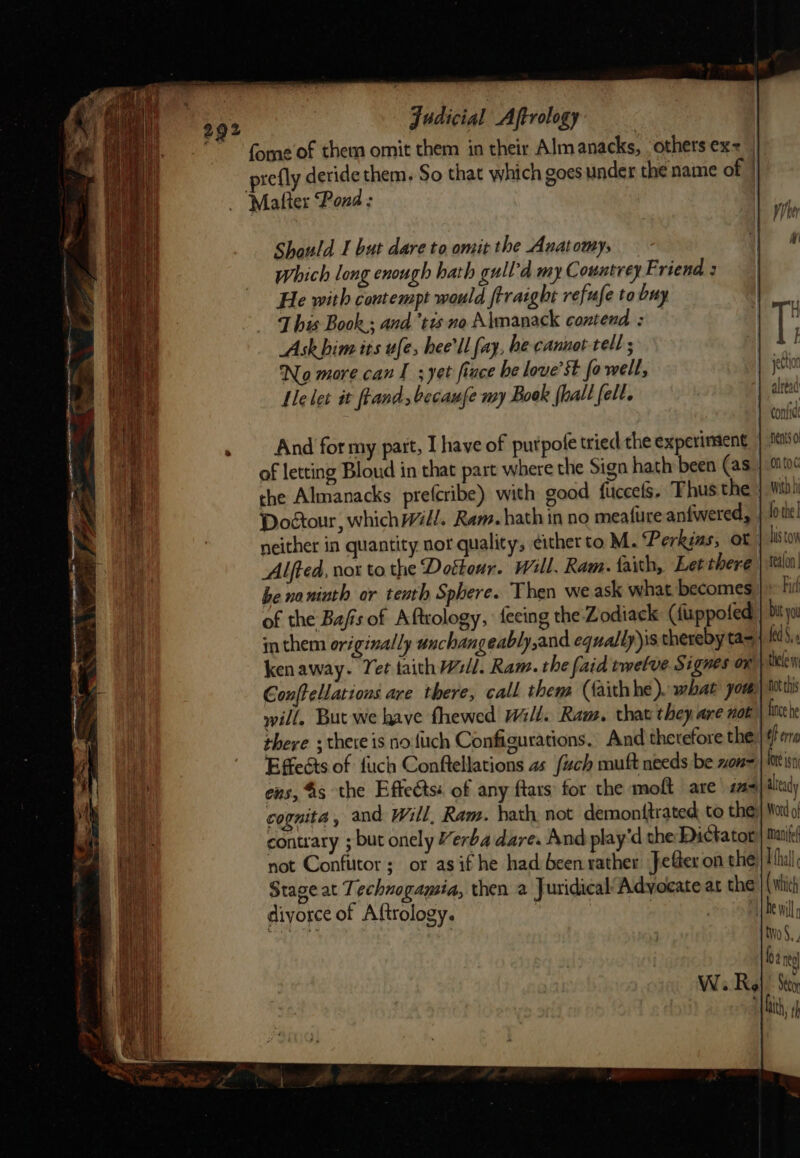 292 Judicial Aſtrology
ſome of them omit them in their Almanacks, others ex-
preſly deride them. So that which goes under the name of
Maſter Pond:
Should I but dare to omit the Anatomy,
Which long enough hath gull'd my Countrey Friend:
He with contempt would ſtraight refuſe to buy
This Book; and 'tis no Almanack contend:
Ask him its uſe, hee'll ſay, he cannot tell;
No more can I; yet ſince he love'st ſo well,
Ile let it ſtand, becauſe my Book ſhall ſell.
And for my part, I have of purpoſe tried the experiment
of letting Bloud in that part where the Sign hath been (as
the Almanacks preſcribe) with good ſucceſs. Thus the
Doctour, which Will. Ram. hath in no meaſure anſwered,
neither in quantity nor quality, either to M. Perkins, or
Alſted, nor to the Doctour. Will. Ram. ſaith, Let there
be na ninth or tenth Sphere. Then we ask what becomes
of the Baſis of Aſtrology, ſeeing the Zodiack (ſuppoſed
in them originally unchangeably, and equally) is thereby ta-
ken away. Yet ſaith Will. Ram. the ſaid twelve Signes or
Conſtellations are there, call them (ſaith he) what you
will. But we have ſhewed Will. Ram. that they are not
there; there is no ſuch Configurations. And therefore the
Effects of ſuch Conſtellations as ſuch muſt needs be non-
ens, as the Effects of any ſtars for the moſt are in-
cognita, and Will. Ram. hath not demonſtrated to the
contrary; but onely Verba dare. And play'd the Dictator
not Confutor; or as if he had been rather Jeſter on the
Stage at Technogamia, then a Juridical Advocate at the
divorce of Aſtrology.
W. R.